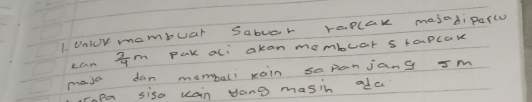 1. Unluk mambuat Sabuah raplak majadiparlu
kan 2/4 m Pak adi akan mambuat 5 taplak
maja dan mambali kain sapanjang 5m
rapa sisa kain yang masih ada